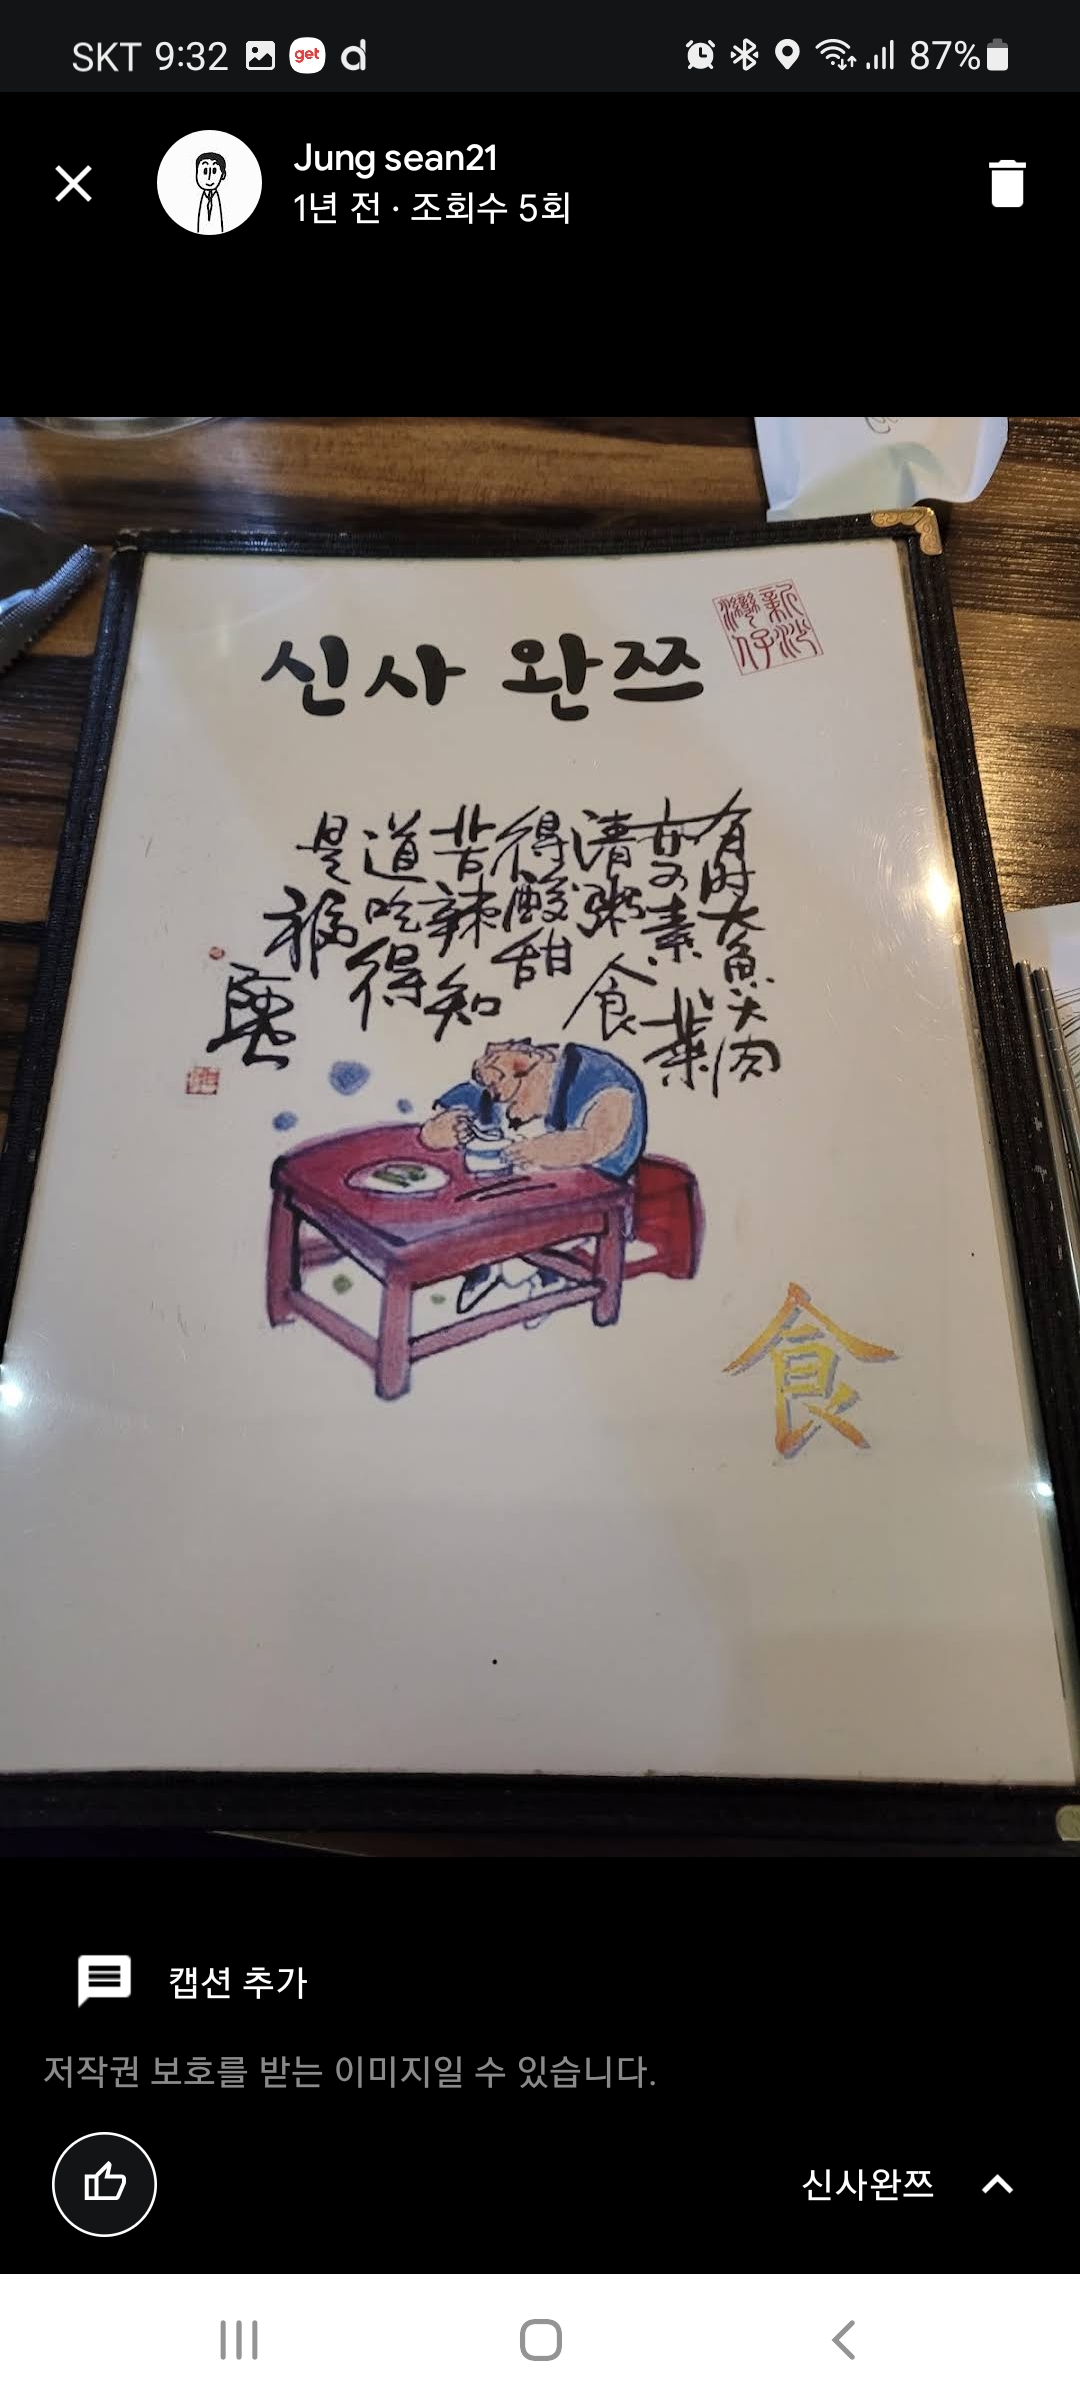 SKT 9:32
get
d
87%
Jung sean21
1년 전 · 조회수 5회
신사 완쯔
新沙
灣仔
有时大魚大肉
素菜
清粥食
得酸甜
苦辣知
道吃得
是福
食
캡션 추가
저작권 보호를 받는 이미지일 수 있습니다.
신사완쯔